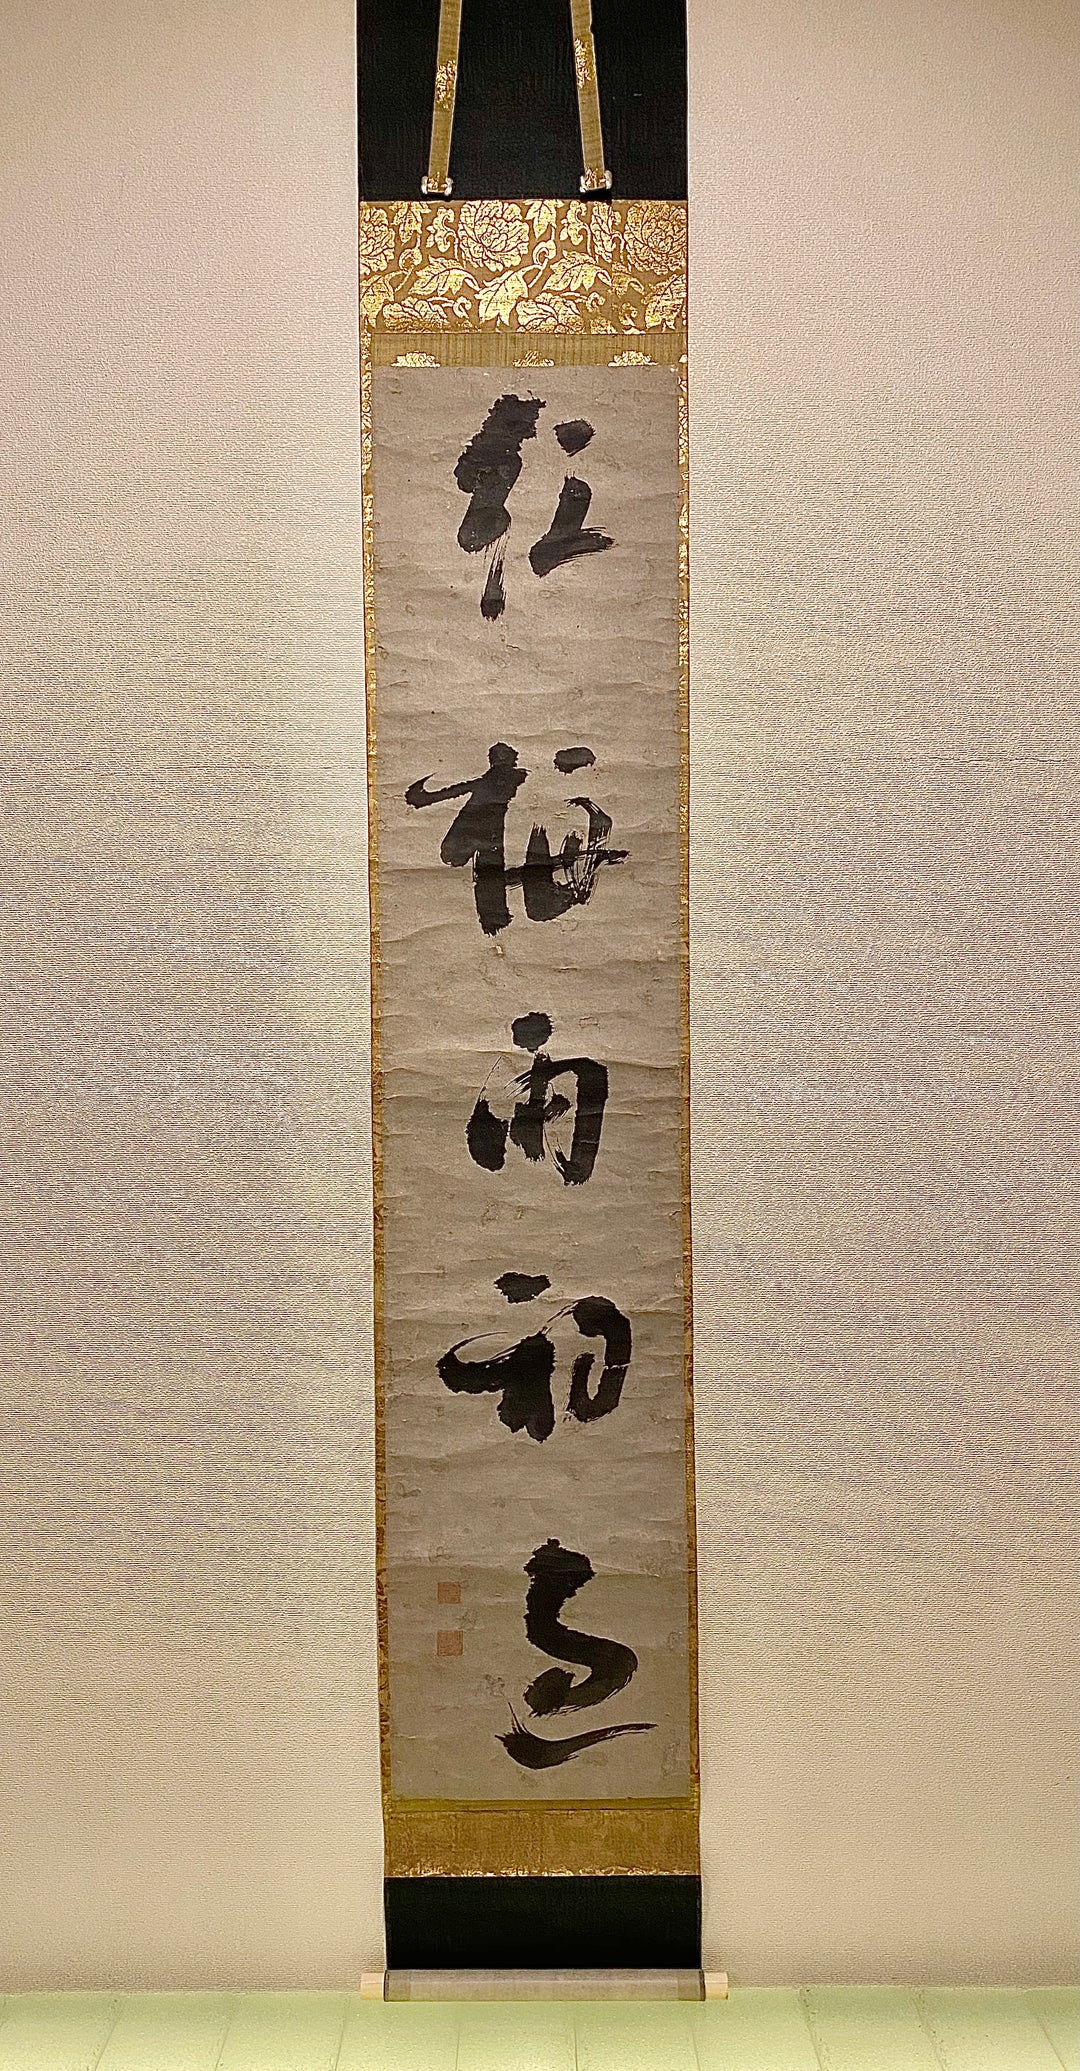 紅梅雨初過